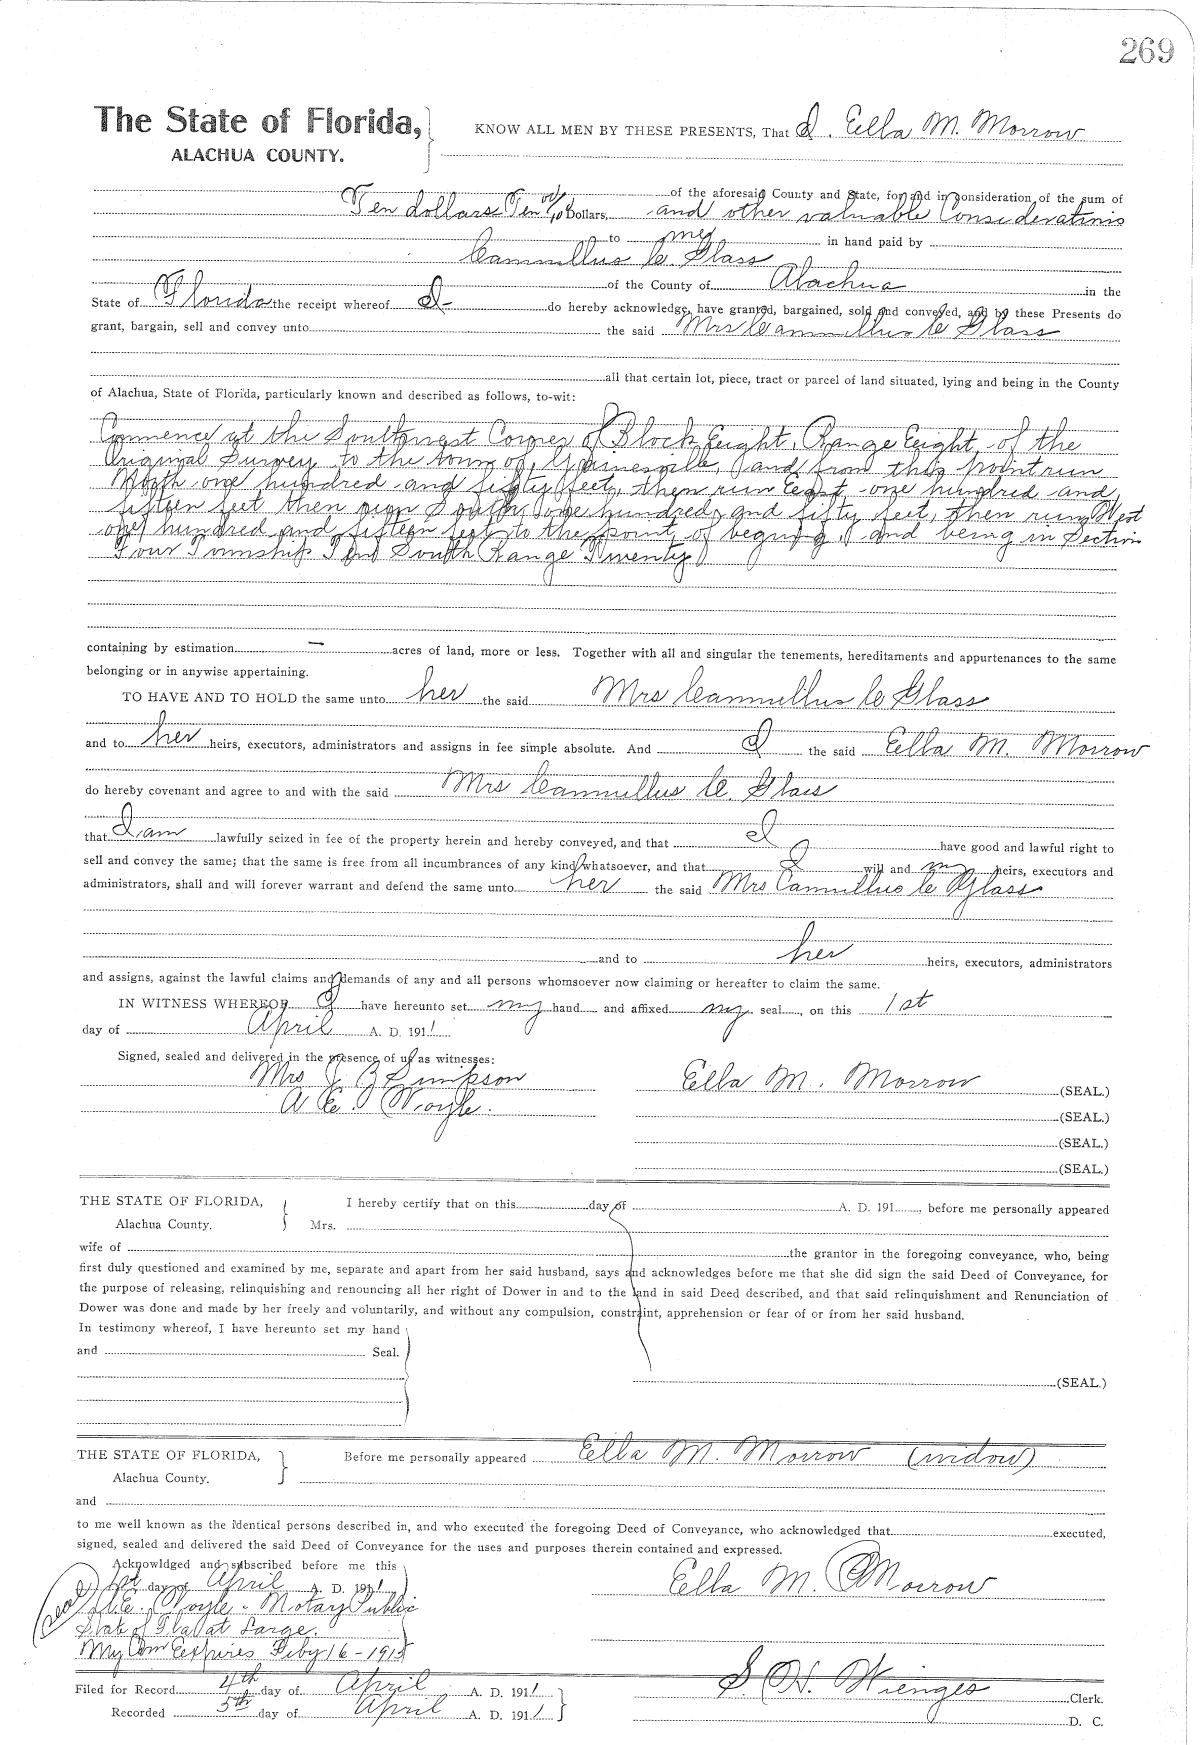 269
The State of Florida,
ALACHUA COUNTY.
KNOW ALL MEN BY THESE PRESENTS, That I. Ella M. Morrow
of the aforesaid County and State, for and in consideration of the sum of
Ten dollars Ten Dollars, and other valuable Considerations
to me in hand paid by
Cammillus C. Glass
of the County of Alachua in the
State of Florida the receipt whereof I do hereby acknowledge, have granted, bargained, sold and conveyed, and by these Presents do
grant, bargain, sell and convey unto the said Mrs Cammillus C Glass
all that certain lot, piece, tract or parcel of land situated, lying and being in the County
of Alachua, State of Florida, particularly known and described as follows, to-wit:
Commence at the Southwest Corner of Block Eight, Range Eight, of the
Original Survey to the town of Gainesville, and from this point run
North one hundred and fifty feet, then run East one hundred and
fifteen feet then run South one hundred and fifty feet, then run West
one hundred and fifteen feet to the point of begining, and being in Section
Four Township Ten South Range Twenty
containing by estimation — acres of land, more or less. Together with all and singular the tenements, hereditaments and appurtenances to the same
belonging or in anywise appertaining.
TO HAVE AND TO HOLD the same unto her the said Mrs Cammillus C Glass
and to her heirs, executors, administrators and assigns in fee simple absolute. And I the said Ella M. Morrow
do hereby covenant and agree to and with the said Mrs Cammillus C. Glass
that I am lawfully seized in fee of the property herein and hereby conveyed, and that I have good and lawful right to
sell and convey the same; that the same is free from all incumbrances of any kind whatsoever, and that I will and my heirs, executors and
administrators, shall and will forever warrant and defend the same unto her the said Mrs Cammillus C Glass
and to her heirs, executors, administrators
and assigns, against the lawful claims and demands of any and all persons whomsoever now claiming or hereafter to claim the same.
IN WITNESS WHEREOF I have hereunto set my hand and affixed my seal, on this 1st
day of April A. D. 1911.
Signed, sealed and delivered in the presence of us as witnesses:
Mrs J B Simpson
A E. Voyle.
Ella M. Morrow (SEAL.)
(SEAL.)
(SEAL.)
(SEAL.)
THE STATE OF FLORIDA,
Alachua County.
I hereby certify that on this day of A. D. 191 , before me personally appeared
Mrs.
wife of the grantor in the foregoing conveyance, who, being
first duly questioned and examined by me, separate and apart from her said husband, says and acknowledges before me that she did sign the said Deed of Conveyance, for
the purpose of releasing, relinquishing and renouncing all her right of Dower in and to the land in said Deed described, and that said relinquishment and Renunciation of
Dower was done and made by her freely and voluntarily, and without any compulsion, constraint, apprehension or fear of or from her said husband.
In testimony whereof, I have hereunto set my hand
and Seal.
(SEAL.)
THE STATE OF FLORIDA,
Alachua County.
Before me personally appeared Ella M. Morrow (widow)
and
to me well known as the identical persons described in, and who executed the foregoing Deed of Conveyance, who acknowledged that executed,
signed, sealed and delivered the said Deed of Conveyance for the uses and purposes therein contained and expressed.
Acknowldged and subscribed before me this
1st day of April A. D. 1911
(seal) A.E. Voyle - Notary Public
State of Fla at Large.
My Com Expires Feby 16 - 1915
Ella M. Morrow
Filed for Record 4th day of April A. D. 1911
Recorded 5th day of April A. D. 1911
S. H. Wienges Clerk.
D. C.